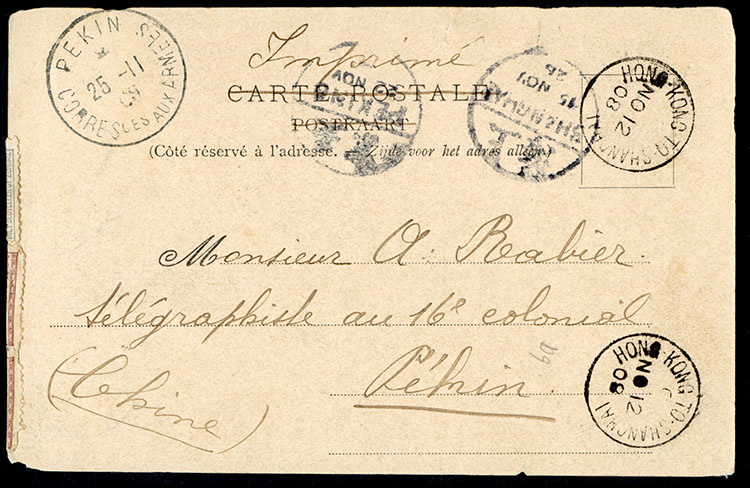 PEKIN
25 -11
08
CORRESCES AUX ARMEES
Imprimé
CARTE POSTALE
POSTKAART
(Côté réservé à l'adresse. — Zijde voor het adres alleen)
PEKING
22 NOV
SHANGHAI
15 NOV
26
HONG-KONG-TO-SHANGHAI
NO 12
08
Monsieur A. Rabier.
télégraphiste au 16e colonial
Pékin.
(Chine)
HONG-KONG-TO-SHANGHAI
NO 12
08